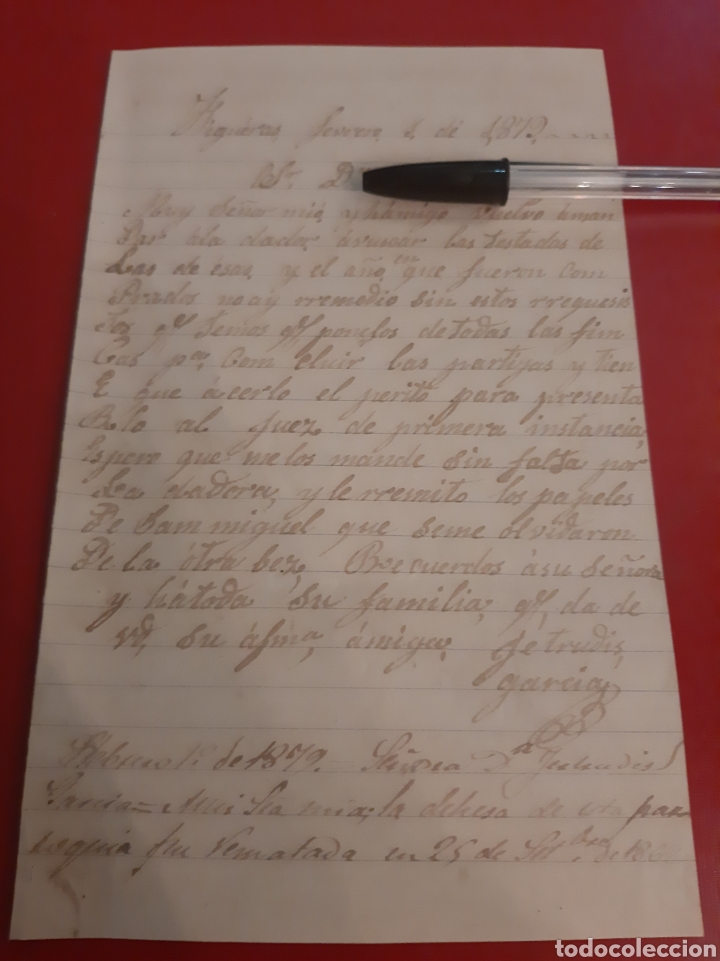 Higueras, fevrero 1 de 1879
Sr. D
Muy Señor mio, y hámigo vuelvo áman
Dar ála dador, ábuscar las testadas de
Las de ésas, y el año, en que fueron Com
Prados no ay rremedio sin estos rrequesis
Tos qe temos qe ponelos de todas las fim
Cas pa Com cluir las partijas y tien
E que ácerlo el perito para presenta
Rlo al Juez de primera instancia,
Espero que me los mande sin falta por
La dadora, y le rremito los papeles
De Sam miguel que seme olvidaron
De la ótra bez, Recuerdos ásu Señora
y hátoda su familia, qe, da de
Vd, su áfma, ámiga, Jetrudis,
garcia
Febrero 1º de 1879. Señora Da Jertrudis
Garcia = Mui Sra mia; la dehesa de esta parr
oquia fue rematada en 25 de de
todocoleccion